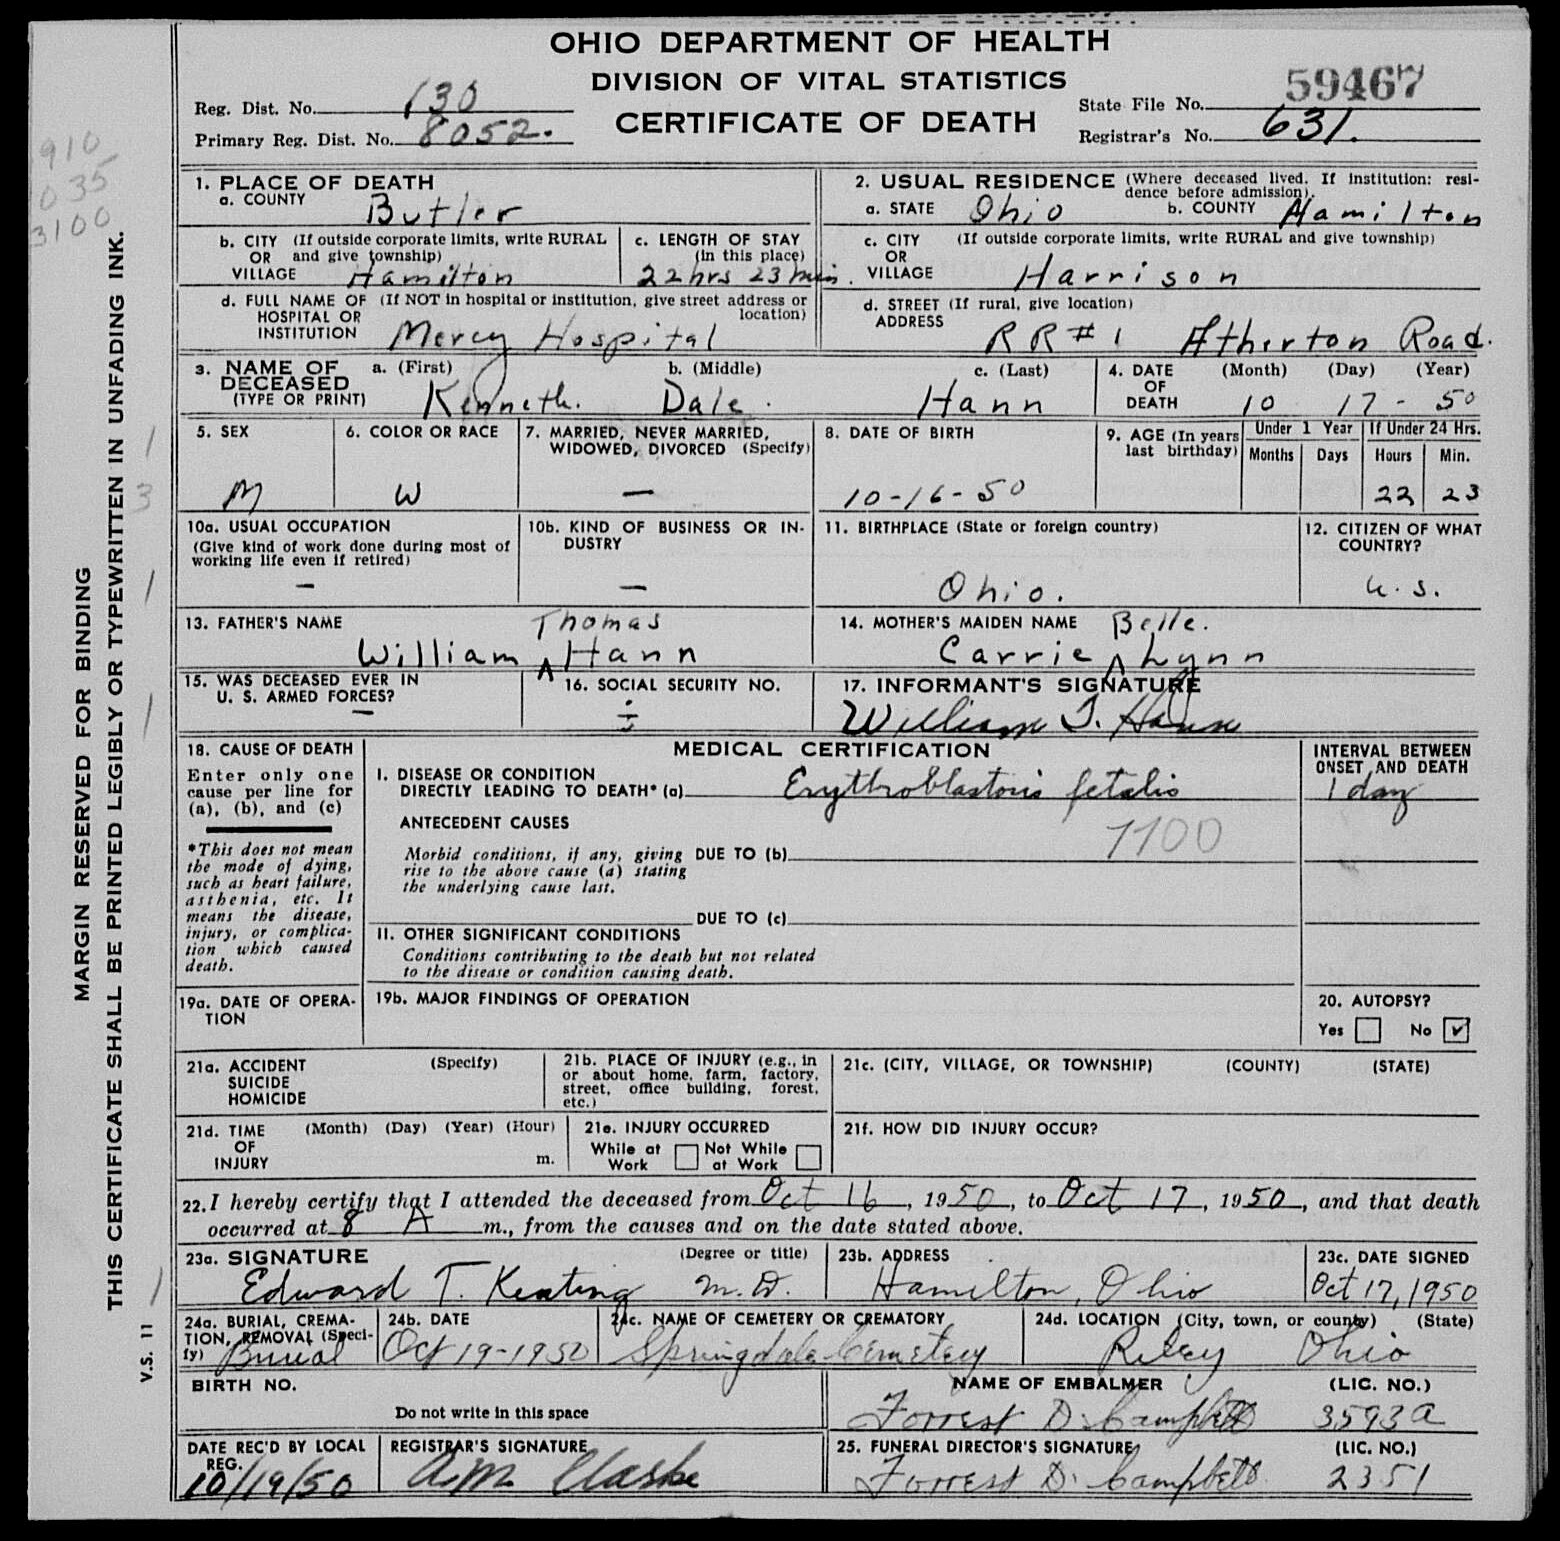 OHIO DEPARTMENT OF HEALTH
DIVISION OF VITAL STATISTICS
CERTIFICATE OF DEATH
Reg. Dist. No. 130
Primary Reg. Dist. No. 8052.
State File No. 59467
Registrar's No. 631.
910
035
3100
MARGIN RESERVED FOR BINDING
THIS CERTIFICATE SHALL BE PRINTED LEGIBLY OR TYPEWRITTEN IN UNFADING INK.
V.S. 11
1
3
1
1
1
1. PLACE OF DEATH
a. COUNTY Butler
2. USUAL RESIDENCE (Where deceased lived. If institution: resi-
dence before admission).
a. STATE Ohio b. COUNTY Hamilton
b. CITY (If outside corporate limits, write RURAL
OR and give township)
VILLAGE Hamilton
c. LENGTH OF STAY
(in this place)
22 hrs 23 min.
c. CITY (If outside corporate limits, write RURAL and give township)
OR
VILLAGE Harrison
d. FULL NAME OF (If NOT in hospital or institution, give street address or
HOSPITAL OR location)
INSTITUTION Mercy Hospital
d. STREET (If rural, give location)
ADDRESS RR # 1 Atherton Road.
3. NAME OF a. (First) b. (Middle) c. (Last)
DECEASED
(TYPE OR PRINT) Kenneth. Dale. Hann
4. DATE (Month) (Day) (Year)
OF
DEATH 10 17 - 50
5. SEX
M
6. COLOR OR RACE
W
7. MARRIED, NEVER MARRIED,
WIDOWED, DIVORCED (Specify)
—
8. DATE OF BIRTH
10-16-50
9. AGE (In years
last birthday)
Under 1 Year
Months Days
If Under 24 Hrs.
Hours Min.
22 23
10a. USUAL OCCUPATION
(Give kind of work done during most of
working life even if retired)
—
10b. KIND OF BUSINESS OR IN-
DUSTRY
—
11. BIRTHPLACE (State or foreign country)
Ohio.
12. CITIZEN OF WHAT
COUNTRY?
U.S.
13. FATHER'S NAME Thomas
William ^ Hann
14. MOTHER'S MAIDEN NAME Belle.
Carrie ^ Lynn
15. WAS DECEASED EVER IN
U. S. ARMED FORCES?
—
16. SOCIAL SECURITY NO.
17. INFORMANT'S SIGNATURE
William T. Hann
18. CAUSE OF DEATH
Enter only one
cause per line for
(a), (b), and (c)
*This does not mean
the mode of dying,
such as heart failure,
asthenia, etc. It
means the disease,
injury, or complica-
tion which caused
death.
MEDICAL CERTIFICATION
INTERVAL BETWEEN
ONSET AND DEATH
I. DISEASE OR CONDITION
DIRECTLY LEADING TO DEATH* (a) Erythroblastosis fetalis
1 day
ANTECEDENT CAUSES
7700
Morbid conditions, if any, giving DUE TO (b)
rise to the above cause (a) stating
the underlying cause last.
DUE TO (c)
II. OTHER SIGNIFICANT CONDITIONS
Conditions contributing to the death but not related
to the disease or condition causing death.
19a. DATE OF OPERA-
TION
19b. MAJOR FINDINGS OF OPERATION
20. AUTOPSY?
Yes No ✓
21a. ACCIDENT (Specify)
SUICIDE
HOMICIDE
21b. PLACE OF INJURY (e.g., in
or about home, farm, factory,
street, office building, forest,
etc.)
21c. (CITY, VILLAGE, OR TOWNSHIP) (COUNTY) (STATE)
21d. TIME (Month) (Day) (Year) (Hour)
OF
INJURY m.
21e. INJURY OCCURRED
While at Not While
Work at Work
21f. HOW DID INJURY OCCUR?
22. I hereby certify that I attended the deceased from Oct 16, 1950, to Oct 17, 1950, and that death
occurred at 8 A m., from the causes and on the date stated above.
23a. SIGNATURE (Degree or title)
Edward T. Keating M.D.
23b. ADDRESS
Hamilton, Ohio
23c. DATE SIGNED
Oct 17, 1950
24a. BURIAL, CREMA-
TION, REMOVAL (Speci-
fy) Burial
24b. DATE
Oct 19-1950
24c. NAME OF CEMETERY OR CREMATORY
Springdale Cemetery
24d. LOCATION (City, town, or county) (State)
Riley Ohio
BIRTH NO.
Do not write in this space
NAME OF EMBALMER (LIC. NO.)
Forrest D. Campbell 3593A
DATE REC'D BY LOCAL
REG.
10/19/50
REGISTRAR'S SIGNATURE
A.M. Clarke
25. FUNERAL DIRECTOR'S SIGNATURE (LIC. NO.)
Forrest D. Campbell 2351